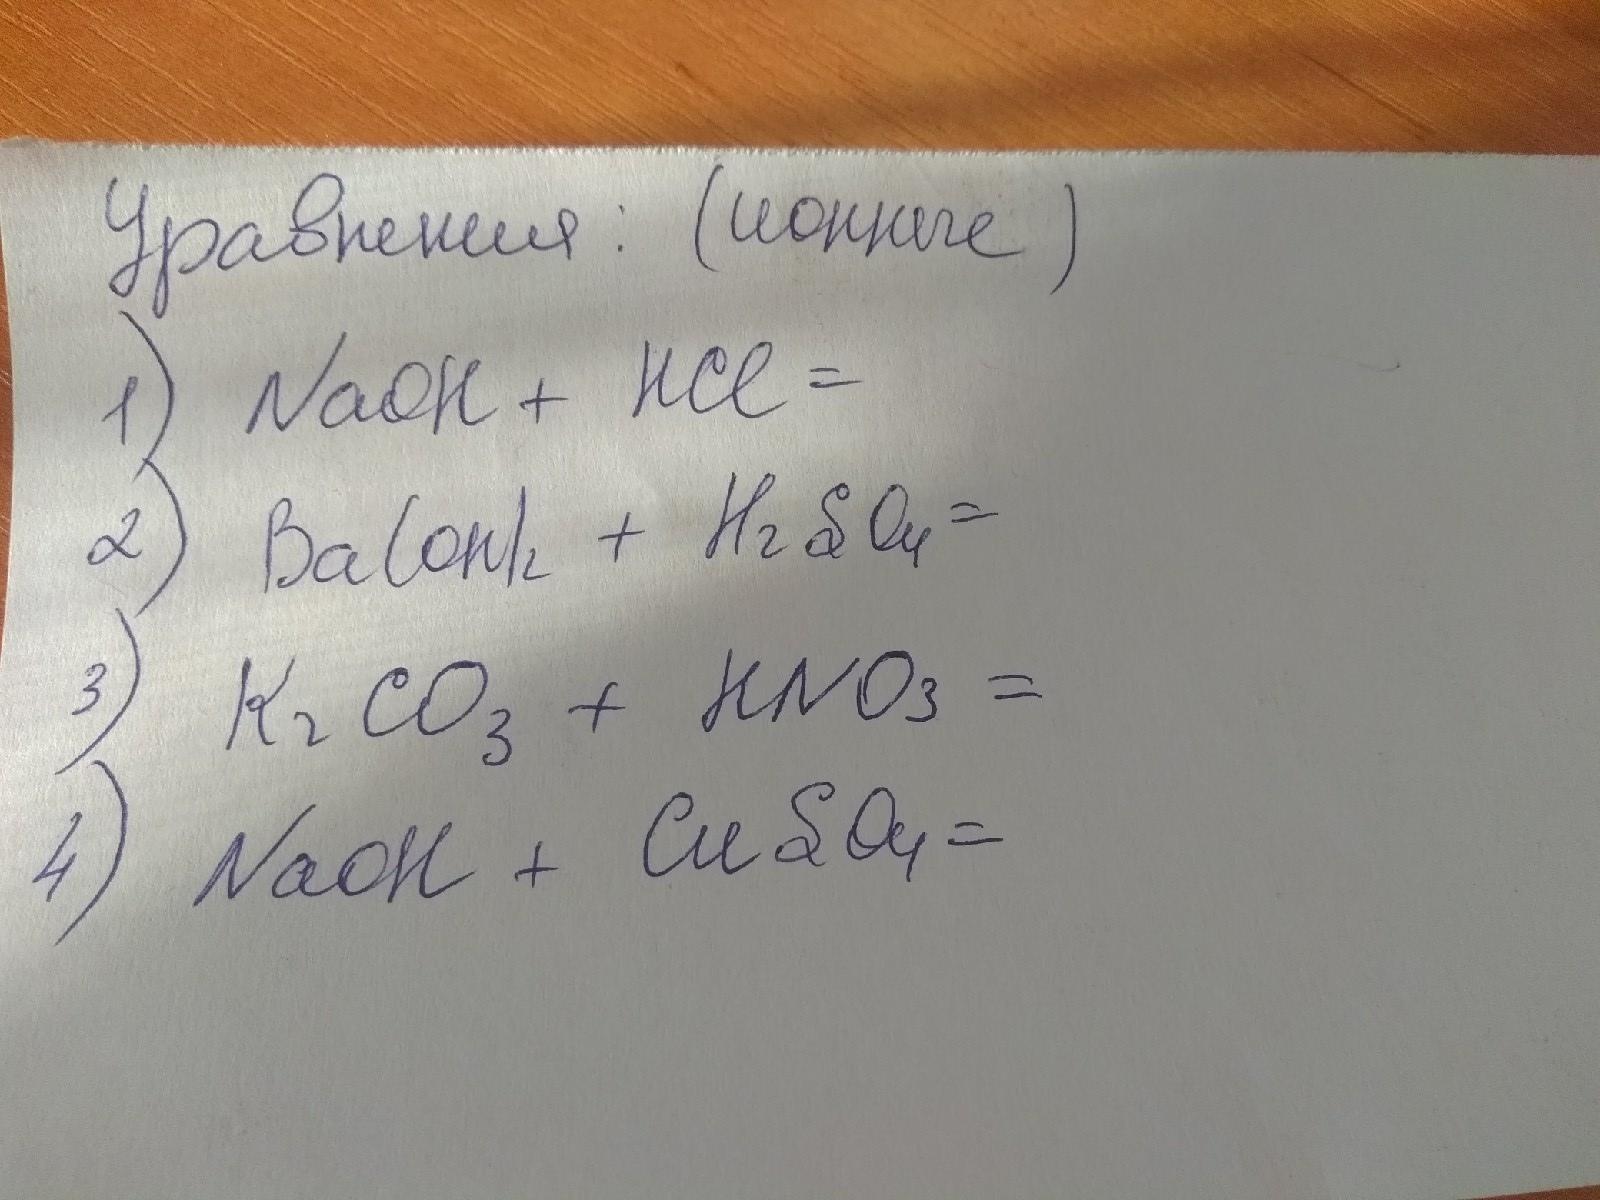 Уравнения: (ионные)
1) NaOH + HCl =
2) Ba(OH)2 + H2SO4 =
3) K2CO3 + HNO3 =
4) NaOH + CuSO4 =